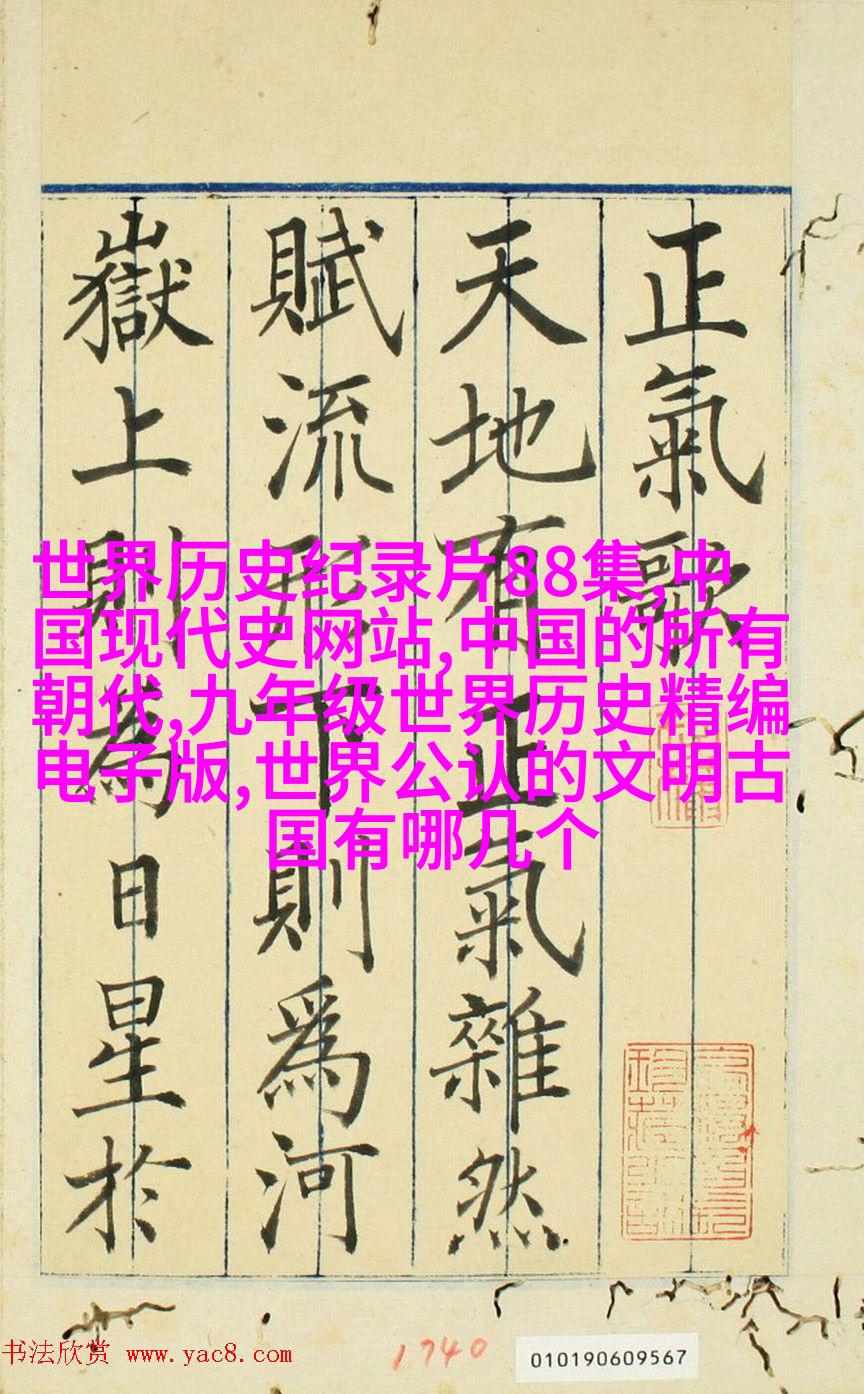 正氣歌
天地有正氣雜然
賦流形下則為河
嶽上則為日星於
世界历史纪录片88集,中
国现代史网站,中国的所有
朝代,九年级世界历史精编
电子版,世界公认的文明古
国有哪几个
书法欣赏 www.yac8.com
1740
010190609567